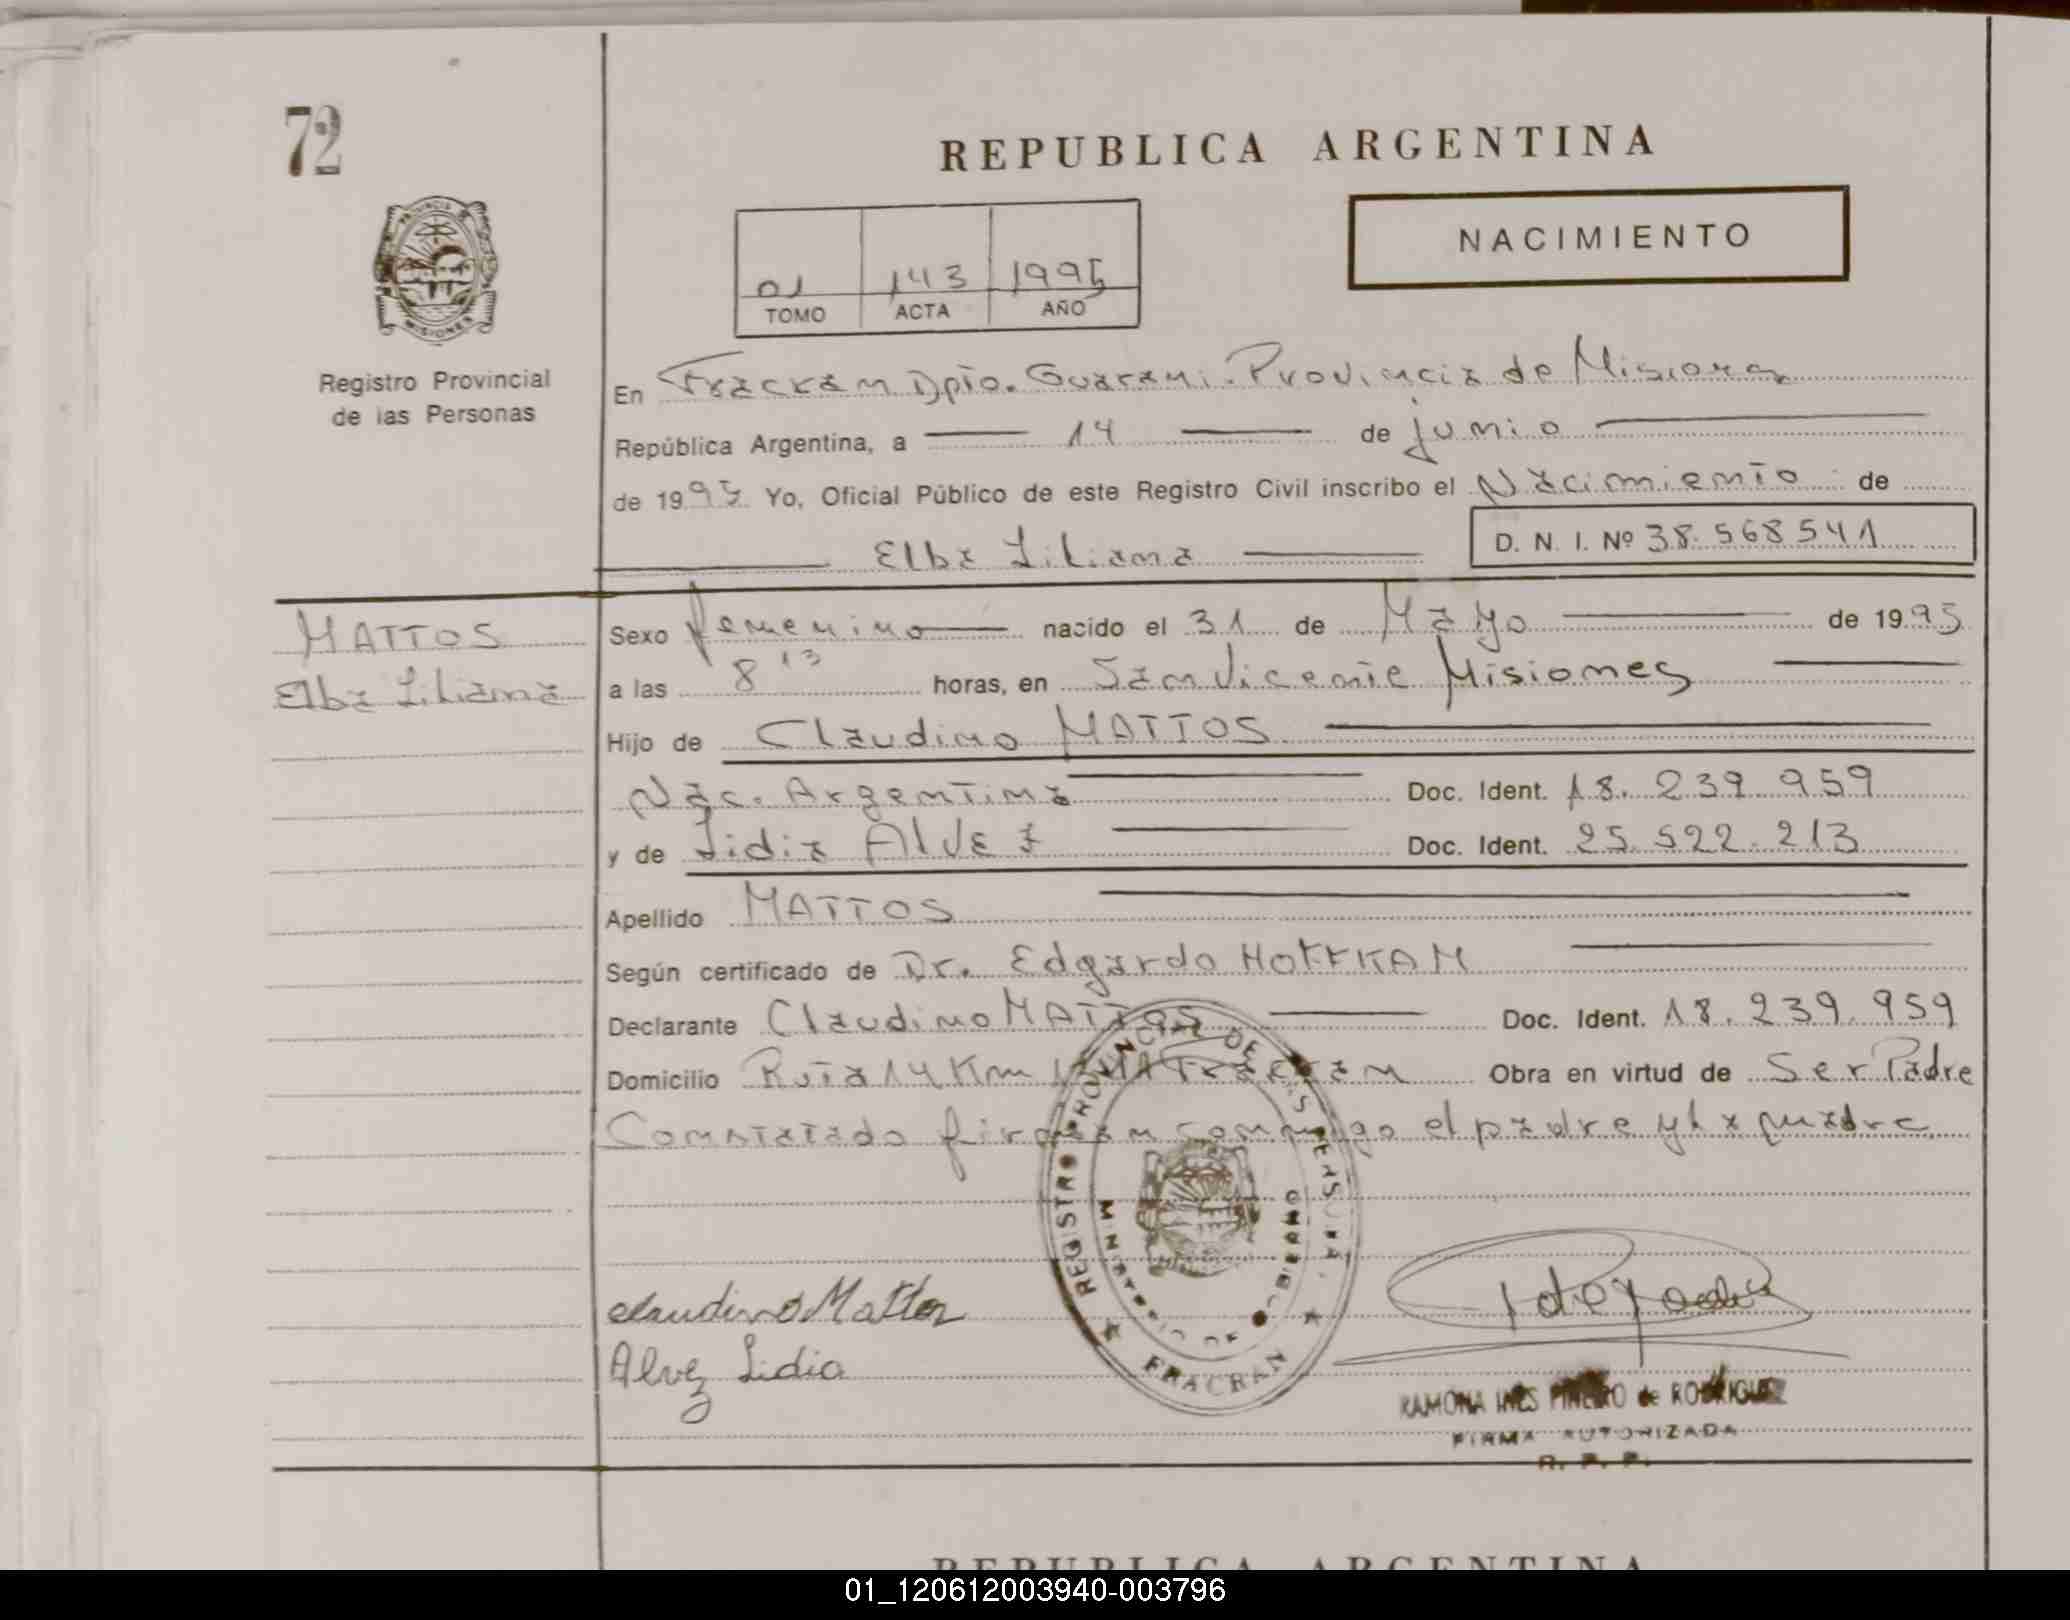 72
REPUBLICA ARGENTINA
NACIMIENTO
01 143 1995
TOMO ACTA AÑO
PROVINCIA DE MISIONES
Registro Provincial
de las Personas
En Fracran Dpto. Guarani. Provincia de Misiones
República Argentina, a 14 de junio
de 1995 Yo, Oficial Público de este Registro Civil inscribo el Nacimiento de
Elba Liliana D. N. I. Nº 38.568541
MATTOS
Elba Liliana
Sexo femenino nacido el 31 de Mayo de 1995
a las 8 13 horas, en San Vicente Misiones
Hijo de Claudino MATTOS
Nac. Argentina Doc. Ident. 18.239.959
y de Lidia Alvez Doc. Ident. 25.522.213
Apellido MATTOS
Según certificado de Dr. Edgardo
Declarante Claudino MATTOS Doc. Ident. 18.239.959
Domicilio Ruta 14 Km Fracran Obra en virtud de Ser Padre
Constatado firman conmigo el padre y la madre
REGISTRO PROVINCIAL DE LAS PERSONAS
MINISTERIO DE GOBIERNO
FRACRAN
Claudino Mattos
Alvez Lidia
RAMONA INES PIÑEIRO de RODRIGUEZ
FIRMA AUTORIZADA
R. P. P.
REPUBLICA ARGENTINA
01_120612003940-003796